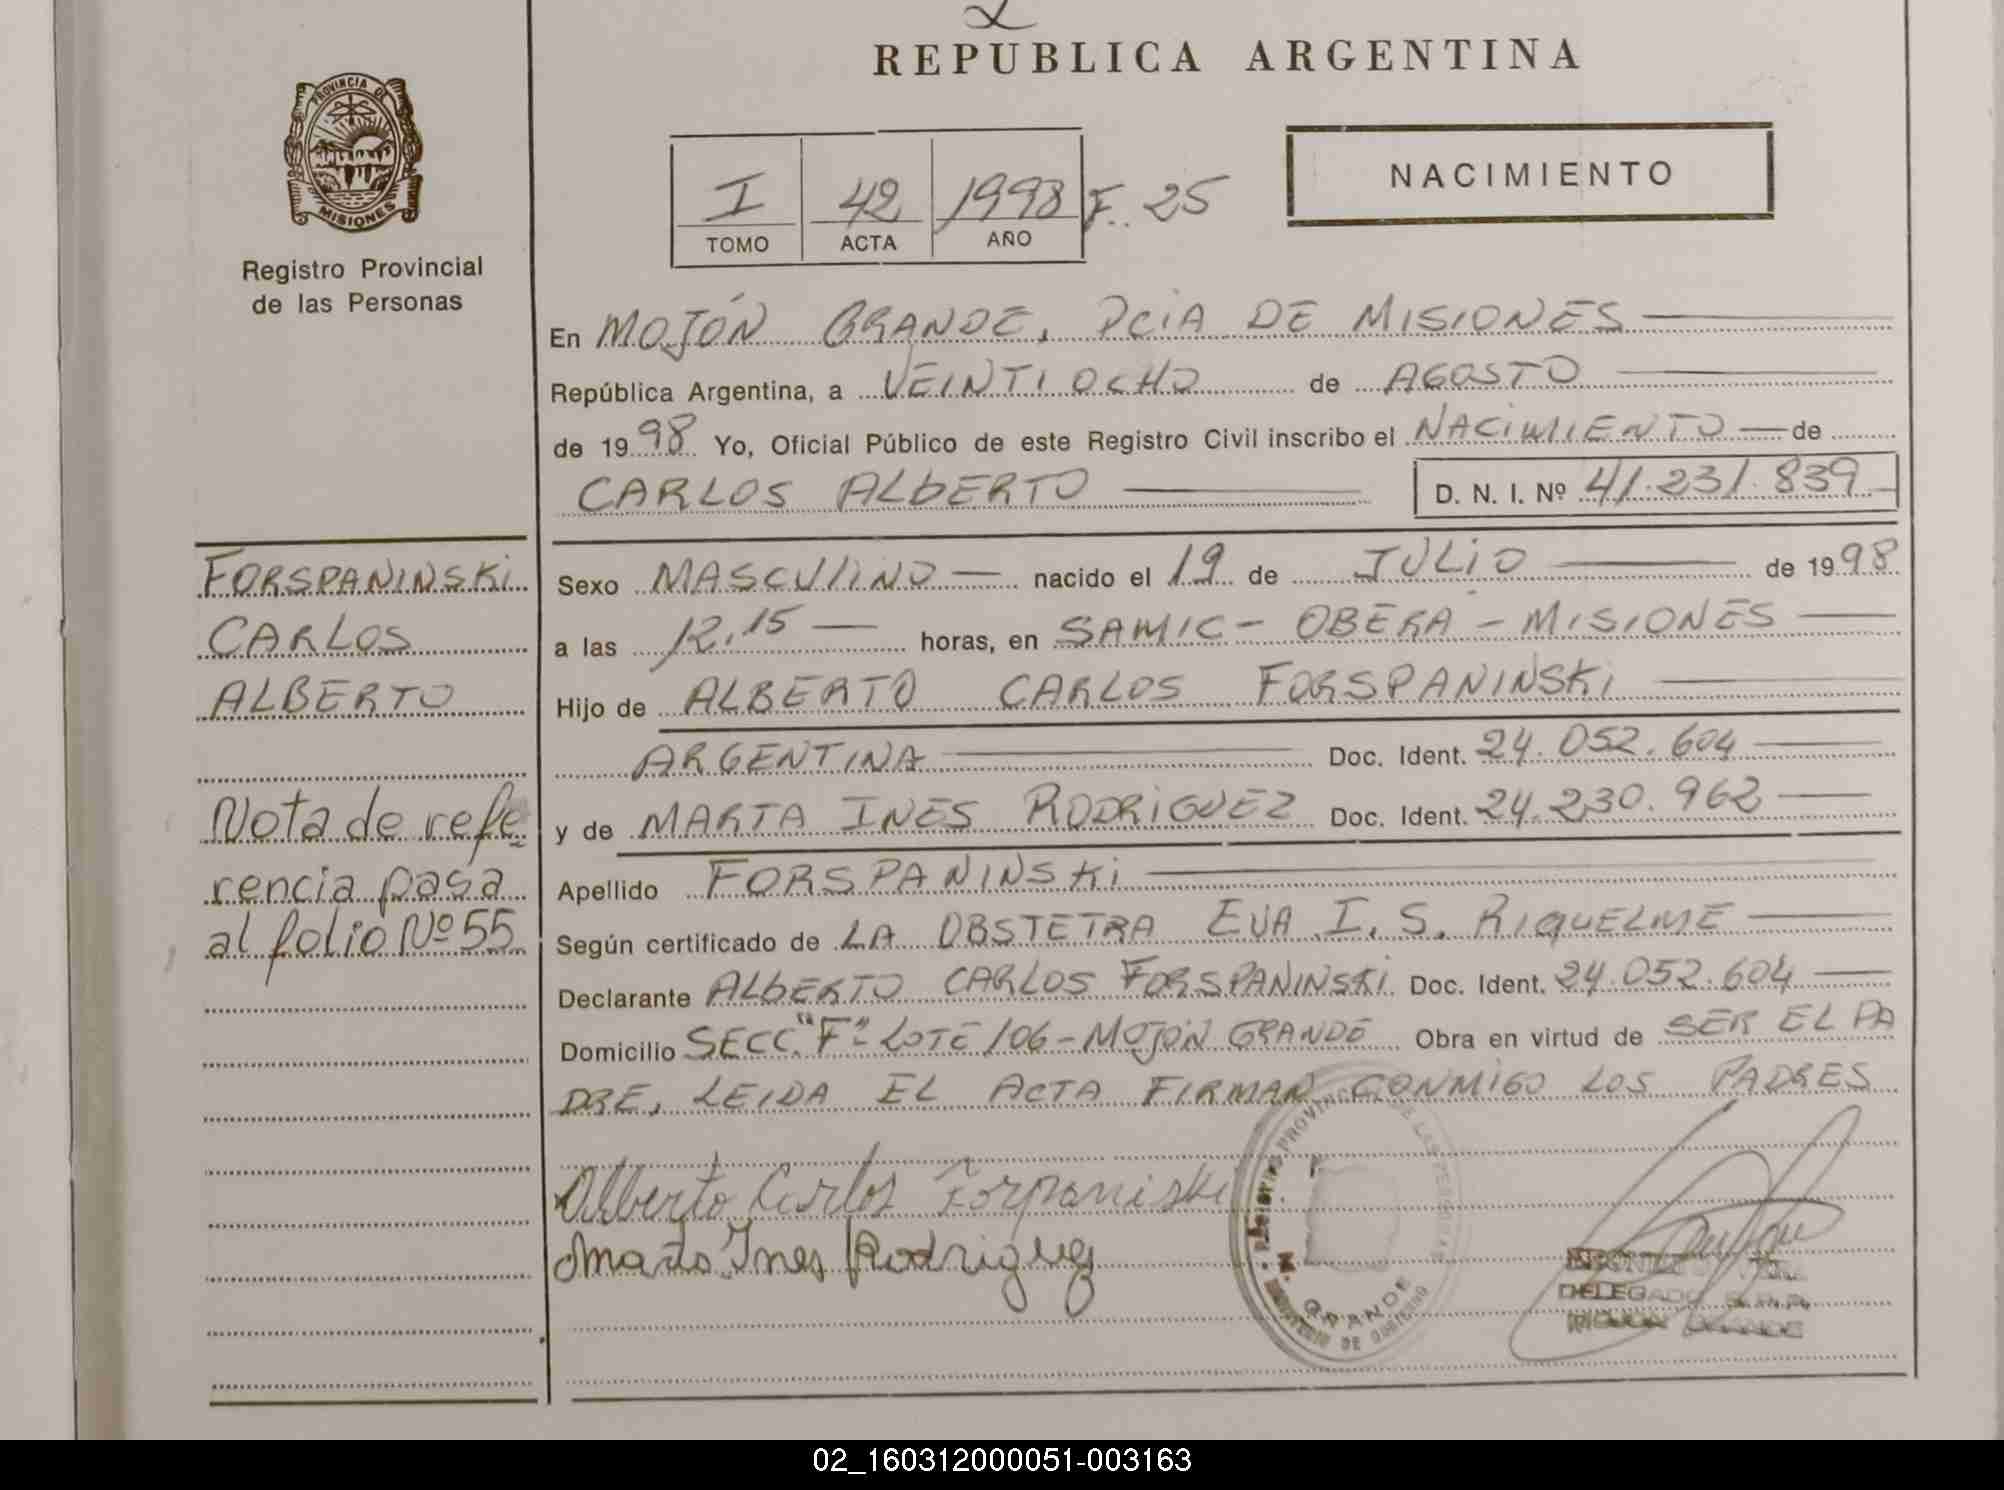 REPUBLICA ARGENTINA
PROVINCIA DE
MISIONES
Registro Provincial
de las Personas
I 42 1998 F. 25
TOMO ACTA AÑO
NACIMIENTO
En MOJÓN GRANDE, PCIA DE MISIONES
República Argentina, a VEINTIOCHO de AGOSTO
de 1998 Yo, Oficial Público de este Registro Civil inscribo el NACIMIENTO de
CARLOS ALBERTO D. N. I. Nº 41.231.839
FORSPANINSKI
CARLOS
ALBERTO
Nota de refe
rencia pasa
al folio Nº 55
Sexo MASCULINO nacido el 19 de JULIO de 1998
a las 12.15 horas, en SAMIC - OBERA - MISIONES
Hijo de ALBERTO CARLOS FORSPANINSKI
ARGENTINA Doc. Ident. 24.052.604
y de MARTA INES RODRIGUEZ Doc. Ident. 24.230.962
Apellido FORSPANINSKI
Según certificado de LA OBSTETRA EVA I. S. RIQUELME
Declarante ALBERTO CARLOS FORSPANINSKI Doc. Ident. 24.052.604
Domicilio SECC. "F" - LOTE 106 - MOJÓN GRANDE Obra en virtud de SER EL PA
DRE, LEIDA EL ACTA FIRMAN CONMIGO LOS PADRES
Alberto Carlos Forpaniski
Marta Ines Rodriguez
REGISTRO PROVINCIAL DE LAS PERSONAS
M. GRANDE
MINISTERIO DE GOBIERNO
DELEGADO R.P.P.
MOJON GRANDE
02_160312000051-003163